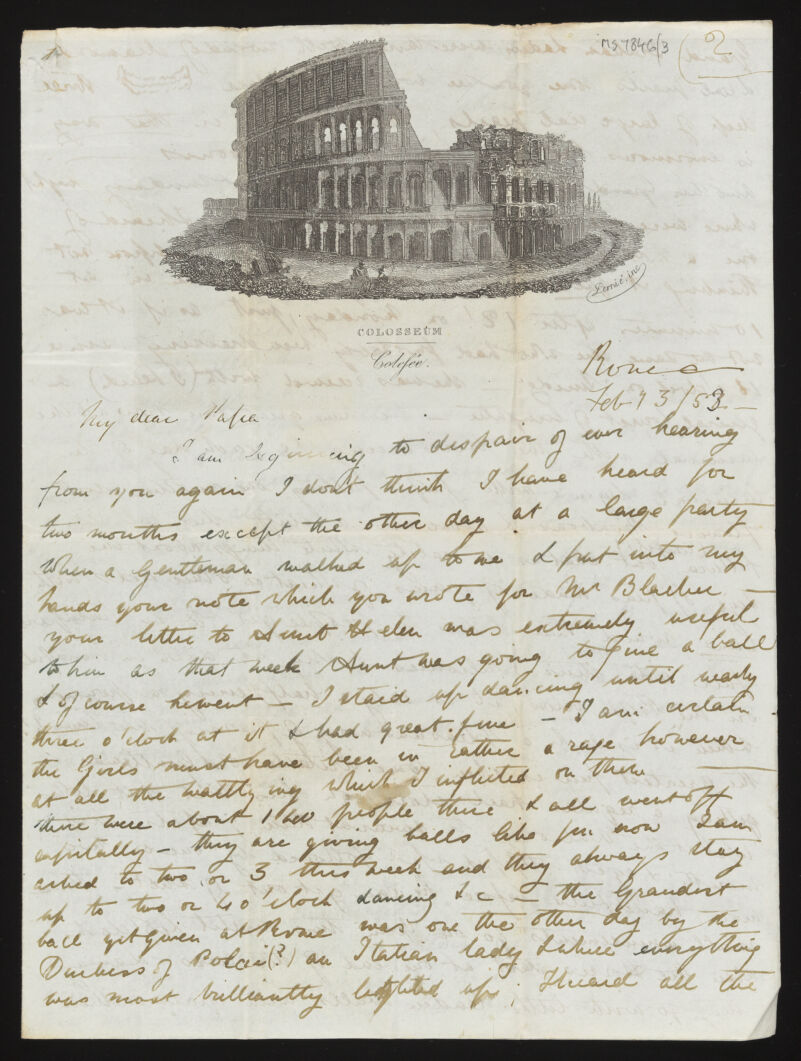 MS 7846/3
2
COLOSSEUM
Colisée.
Rome
Feb 13/53 –
My dear Papa
I am beginning to despair of ever hearing
from you again I dont think I have heard for
two months except the other day at a large party
when a Gentleman walked up to me & put into my
hands your note which you wrote for Mr –
your letter to Aunt Helen was extremely useful
to him as that week Aunt was going to give a ball
& of course he went – I staid up dancing until nearly
three o'clock at it & had great fun – I am certain
the Girls must have been in rather a rage however
at all the which I inflicted on them
there were about 120 people there & all went off
capitally – they are giving balls like fun now I am
asked to two or 3 this week and they always stay
up to two or 4 o'clock dancing &c – the Grandest
ball yet given at Rome was one the other day by the
Duchess of (?) an Italian lady where everything
was most brilliantly lighted up; I heard all the